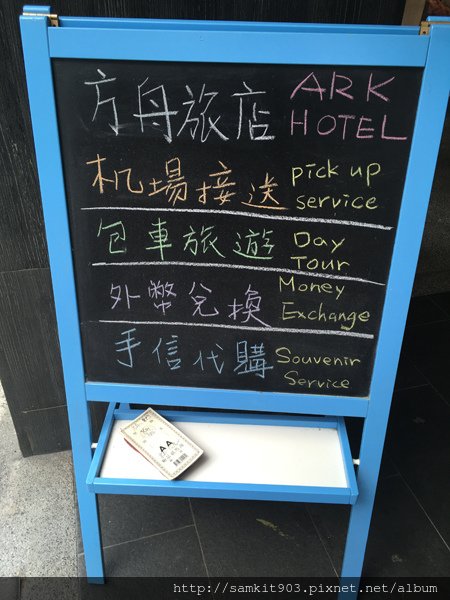 方舟旅店 ARK HOTEL
机場接送 pick up service
包車旅遊 Day Tour
外幣兌換 Money Exchange
手信代購 Souvenir Service
AA
http://samkit903.pixnet.net/album